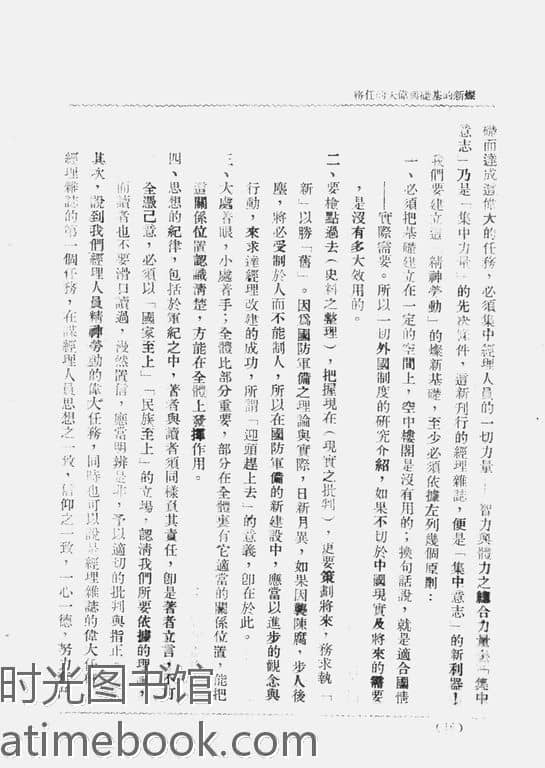 燦新的基礎與偉大的任務
礎而達成這偉大的任務，必須集中經理人員的一切力量──智力與體力之總合力量。「集中
意志」乃是「集中力量」的先决條件，這新刊行的經理雜誌，便是「集中意志」的新利器！
我們要建立這 精神勞動」的燦新基礎，至少必須依據左列幾個原則：
一、必須把基礎建立在一定的空間上，空中樓閣是沒有用的；換句話說，就是適合國情
──實際需要。所以一切外國制度的研究介紹，如果不切於中國現實及將來的需要
，是沒有多大效用的。
二、要檢點過去（史料之整理），把握現在（現實之批判），更要策劃將來，務求執「
新」以勝「舊」。因爲國防軍備之理論與實際，日新月異，如果因襲陳腐，步人後
塵，將必受制於人而不能制人，所以在國防軍備的新建設中，應當以進步的觀念與
行動，來求達經理改建的成功，所謂「迎頭趕上去」的意義，卽在於此。
三、大處着眼，小處着手；全體比部分重要，部分在全體裏有它適當的關係位置，能把
這關係位置認識清楚，方能在全體上發揮作用。
四、思想的紀律，包括於軍紀之中，著者與讀者須同樣負其責任，卽是著者立言
全憑己意，必須以「國家至上」「民族至上」的立場，認淸我們所要依據的理
而讀者也不要滑口讀過，漫然置信，應當明辨是非，予以適切的批判與指正
其次，說到我們經理人員精神勞動的偉大任務，同時也可以說是經理雜誌的偉大任
經理雜誌的第一個任務，在謀經理人員思想之一致，信仰之一致，一心一德，努力
时光图书馆
atimebook.com